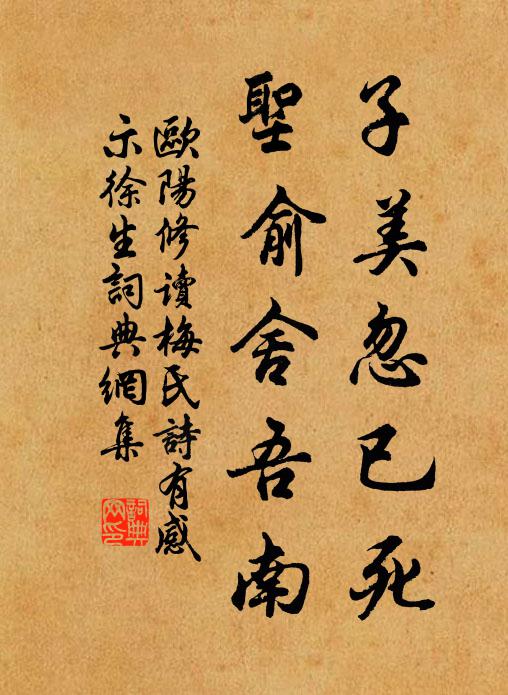 子美忽已死
聖俞舍吾南
歐陽修讀梅氏詩有感
示徐生詞典網集
詞典
网印